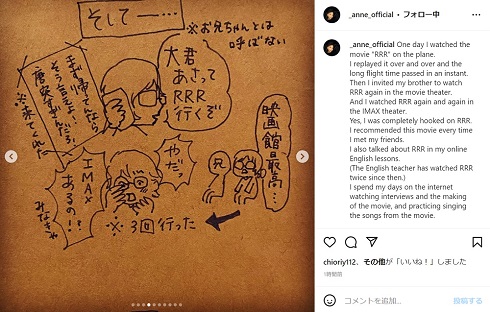 そして—…
※お兄ちゃんとは
呼ばない
大君
あさって
RRR
行くぞ
唐突すぎんだろ
※来てくれた
映画館最高…
死
やだっ
IMAX
あるの!?
みなきゃ
※3回行った
_anne_official • フォロー中
_anne_official One day I watched the
movie "RRR" on the plane.
I replayed it over and over and the
long flight time passed in an instant.
Then I invited my brother to watch
RRR again in the movie theater.
And I watched RRR again and again in
the IMAX theater.
Yes, I was completely hooked on RRR.
I recommended this movie every time
I met my friends.
I also talked about RRR in my online
English lessons.
(The English teacher has watched RRR
twice since then.)
I spend my days on the internet
watching interviews and the making
of the movie, and practicing singing
the songs from the movie.
chioriy112、その他が「いいね！」しました
1時間前
コメントを追加...
投稿する